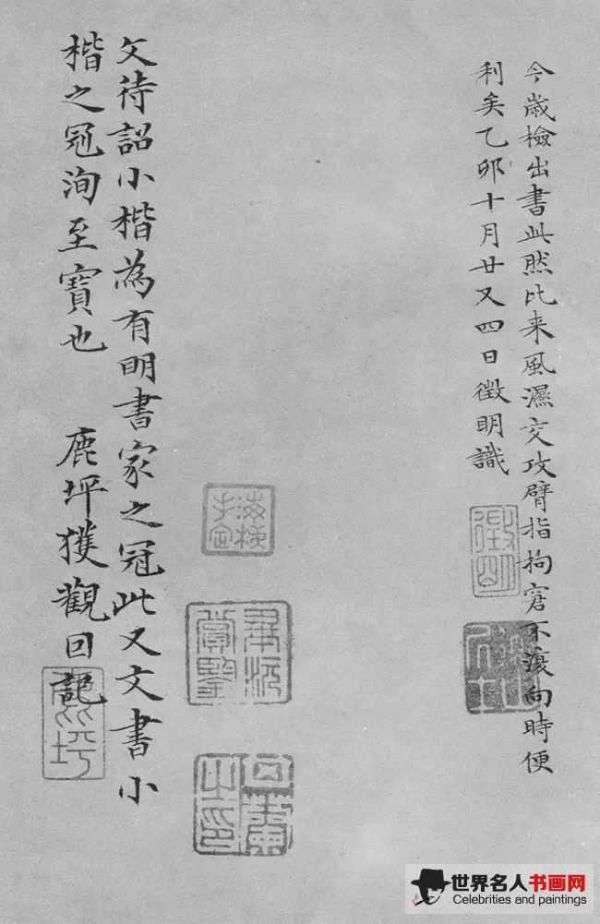 今歲檢出書此然比来風濕交攻臂指拘窘不復向時便
利矣乙卯十月廿又四日徵明識
徵明
文待詔小楷為有明書家之冠此又文書小
楷之冠洵至寶也 鹿坪獲觀回記
鹿坪
世界名人书画网
Celebrities and paintings